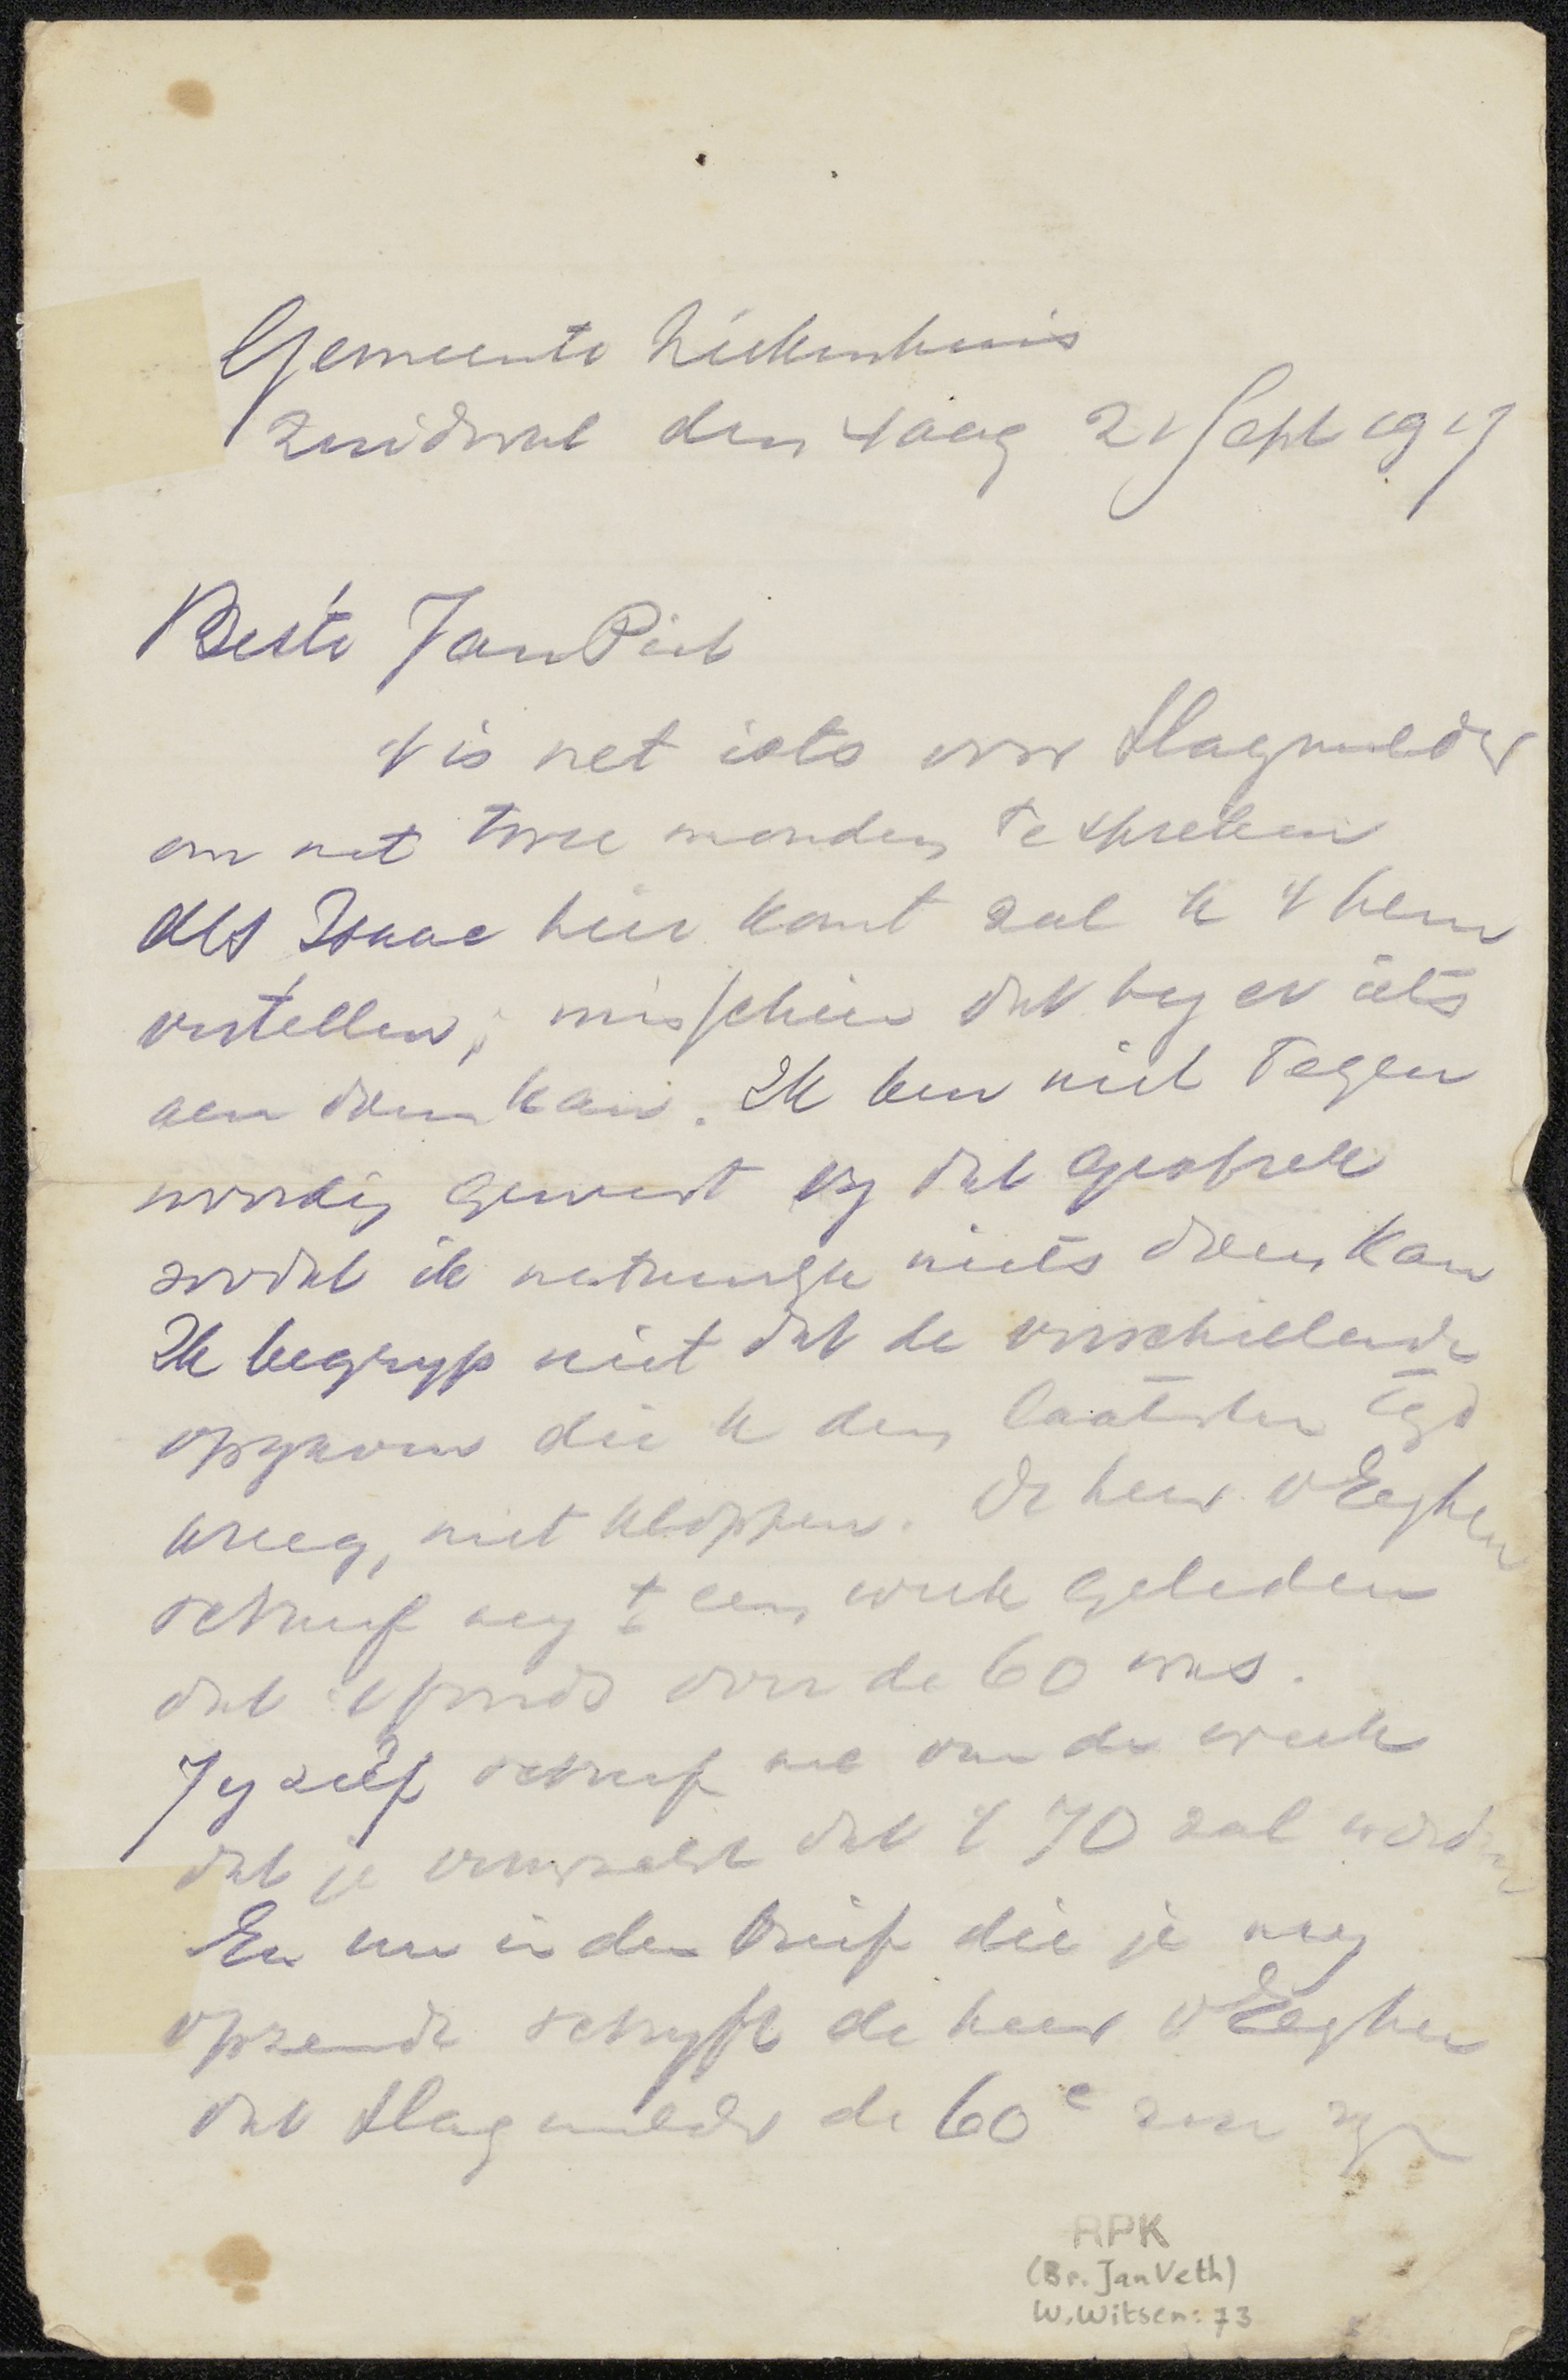 Gemeente Ziekenhuis
Zuidwal den Haag 21 Sept 1917
Beste Jan Piet
't is net iets voor Hagmulder
om met twee monden te spreken
Als Isaac hier komt zal ik 't hem
vertellen, misschien dat hy er iets
aen doen kan. Ik ben niet tegen
woordig geweest by dat gesprek
zoodat ik natuurlyk niets doen kan
Ik begryp niet dat de verschillende
opgaven die ik den laatsten tyd
kreeg, niet kloppen. De heer v Eeghen
schreef my ± een week geleden
dat 't fonds over de 60 was.
Jy zelf schreef me van de week
dat je verwacht dat 't 70 zal worden
En nu in den brief die je my
opzendt schryft de heer v Eeghen
dat Hagmulder de 60e zou zyn
RPK
(Br. Jan Veth)
W. Witsen: 73